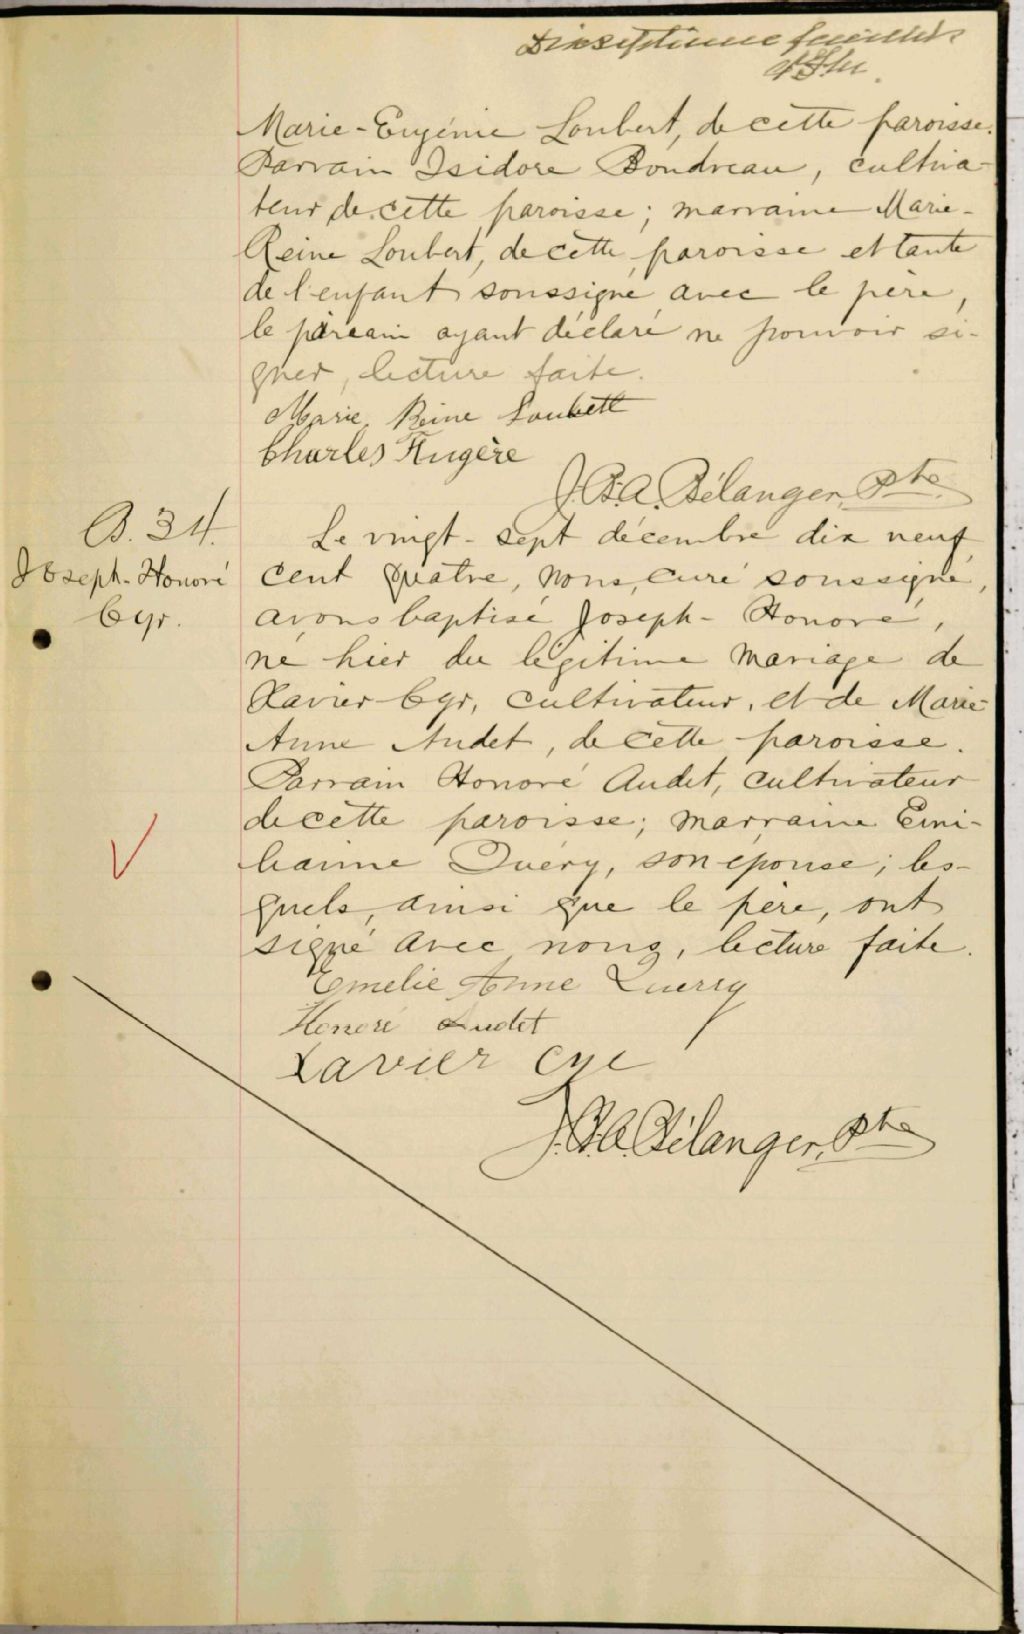 Dixseptieme feuillet
Marie-Eugénie Loubert, de cette paroisse.
Parrain Isidore Boudreau, cultiva-
teur de cette paroisse; marraine Marie-
Reine Loubert, de cette paroisse et tante
de l'enfant soussigné avec le père,
le parrain ayant déclaré ne pouvoir si-
gner, lecture faite.
Marie Reine Loubert
Charles Fugère
J.B.A. Bélanger, Ptre
B. 34.
Joseph-Honoré
Cyr.
Le vingt-sept décembre dix neuf
cent quatre, nous, curé soussigné,
avons baptisé Joseph-Honoré,
né hier du légitime mariage de
Xavier Cyr, cultivateur, et de Marie-
Anne Audet, de cette paroisse.
Parrain Honoré Audet, cultivateur
de cette paroisse; marraine Emi-
lianne Quéry, son épouse; les-
quels, ainsi que le père, ont
signé avec nous, lecture faite.
Emelie Anne Querry
Honoré Audet
Xavier Cyr
J.B.A. Bélanger, Ptre